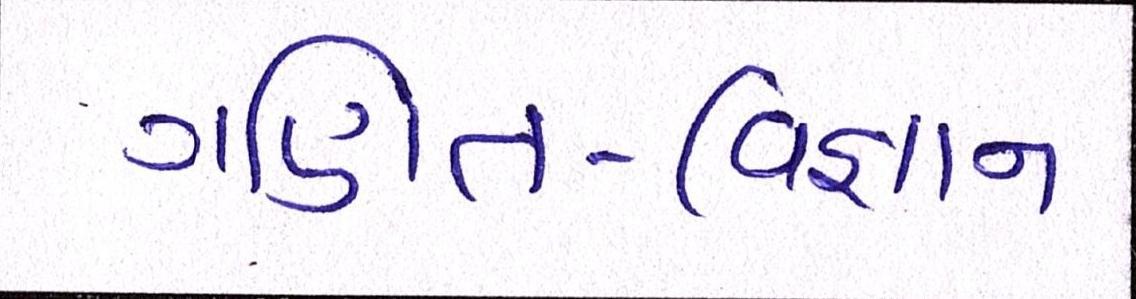 ગણિત-વિજ્ઞાન